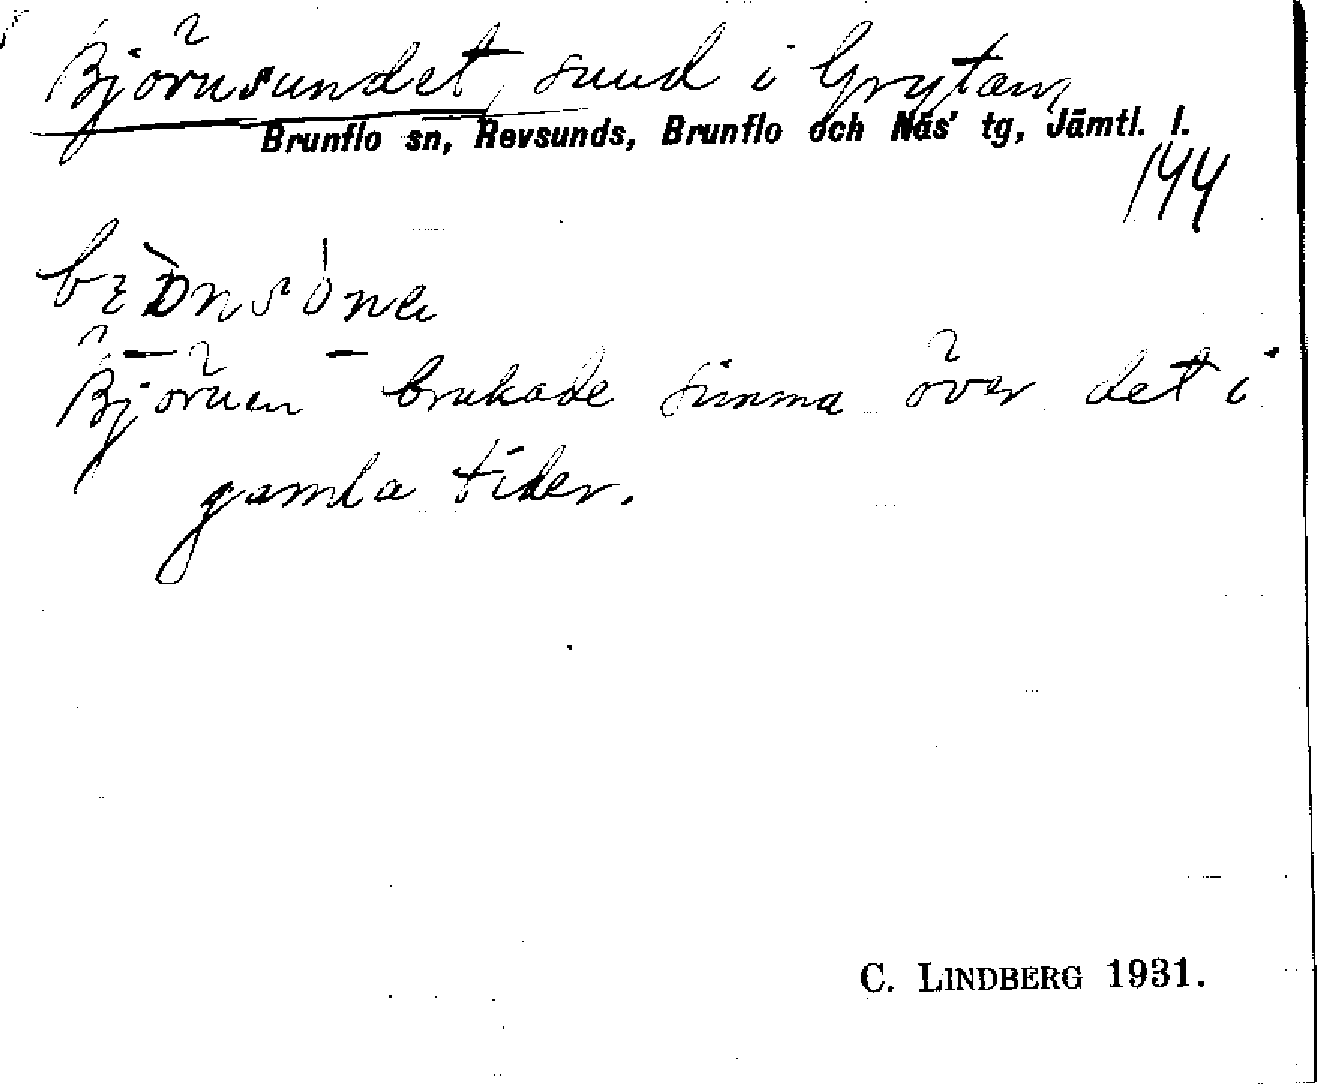 Björnsundet, sund i Grytan
Brunflo sn, Revsunds, Brunflo och Näs' tg, Jämtl. l.
144
Björnen brukade simma över det i
gamla tider.
C. LINDBERG 1931.